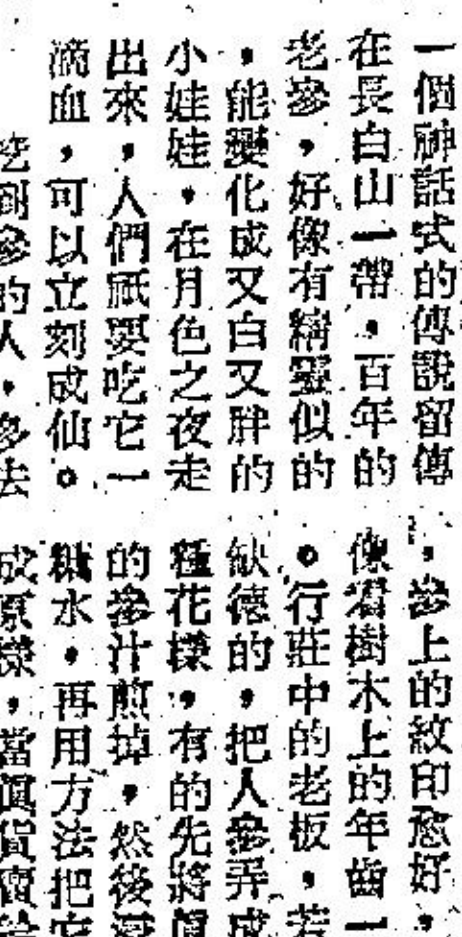 一個神話式的傳說留傳
在長白山一帶，百年的
老參，好像有精靈似的
，能變化成又白又胖的
小娃娃，在月色之夜走
出來，人們祇要吃它一
滴血，可以立刻成仙。
吃到參的人，多去
，參上的紋印愈好，
像看樹木上的年齒一
。行莊中的老板，若
缺德的，把人參弄成
種花樣，有的先將真
的參汁煎掉，然後浸
糖水，再用方法把它
成原樣，當眞貨賣給